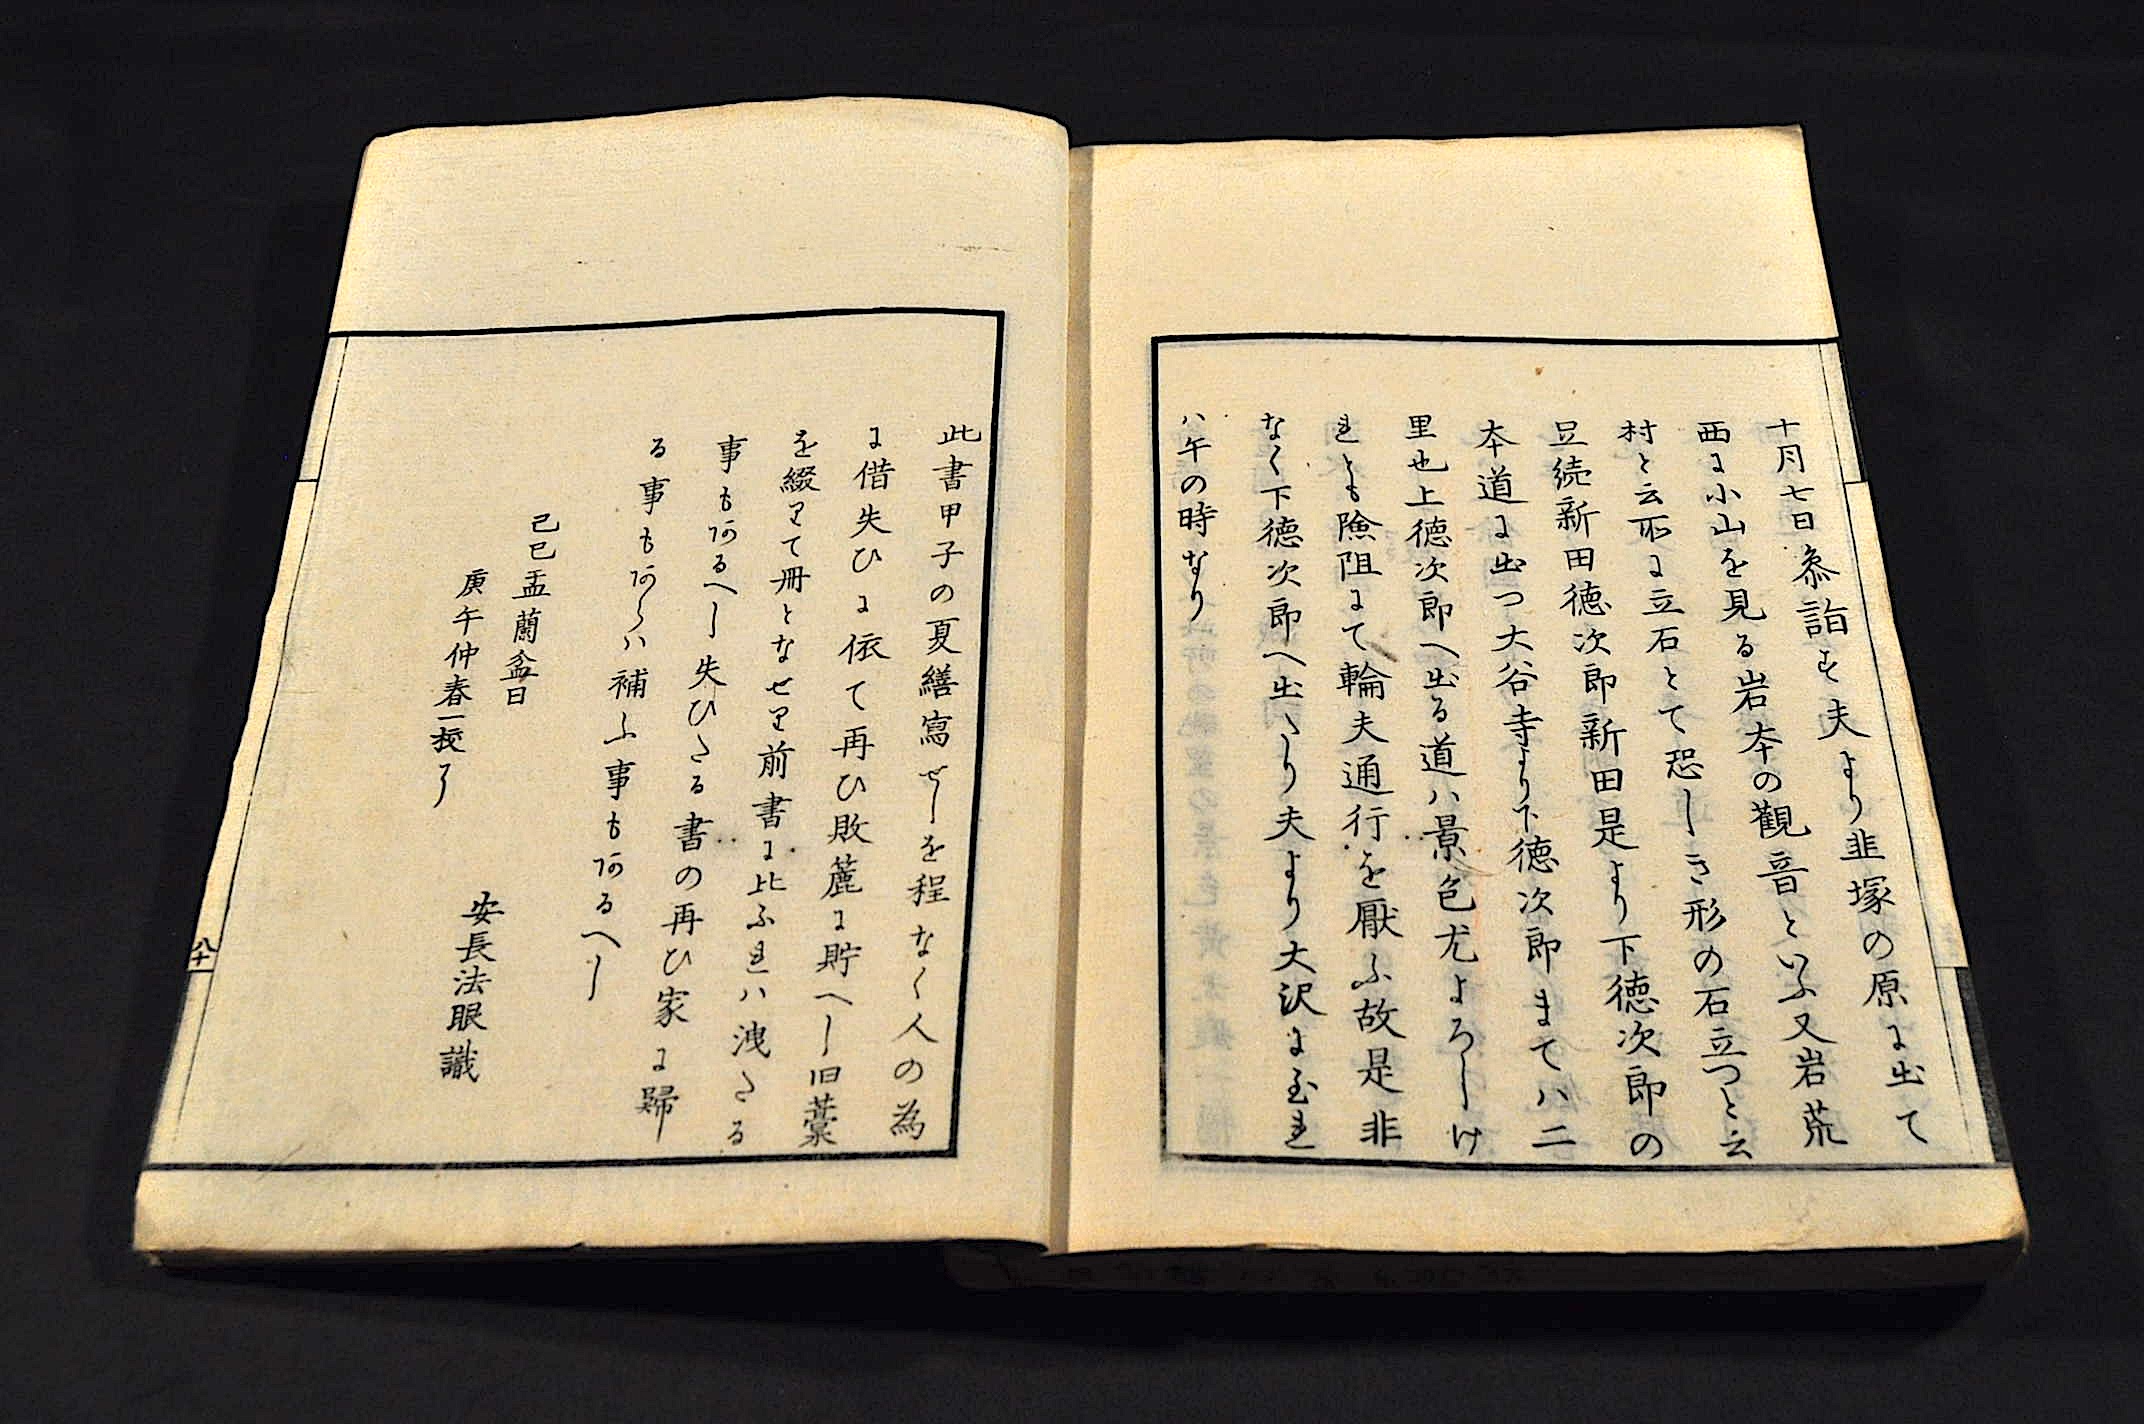 十月七日参詣す夫より韭塚の原に出て
西に小山を見る岩本の観音といふ又岩荒
村と云所に立石とて恐しき形の石立つと云
豆続新田徳次郎新田是より下徳次郎の
本道に出つ大谷寺より下徳次郎まてハ二
里也上徳次郎へ出る道ハ景色尤よろしけ
れとも険阻にて輪夫通行を厭ふ故是非
なく下徳次郎へ出たり夫より大沢に至れ
ハ午の時なり
此書甲子の夏繕寫せしを程なく人の為
に借失ひに依て再ひ敗簏に貯へし旧藁
を綴りて冊となせり前書に比ふれハ洩たる
事もあるへし失ひたる書の再ひ家に歸
る事もあらハ補ふ事もあるへし
己巳盂蘭盆日
庚午仲春一校了
安長法眼識
八十